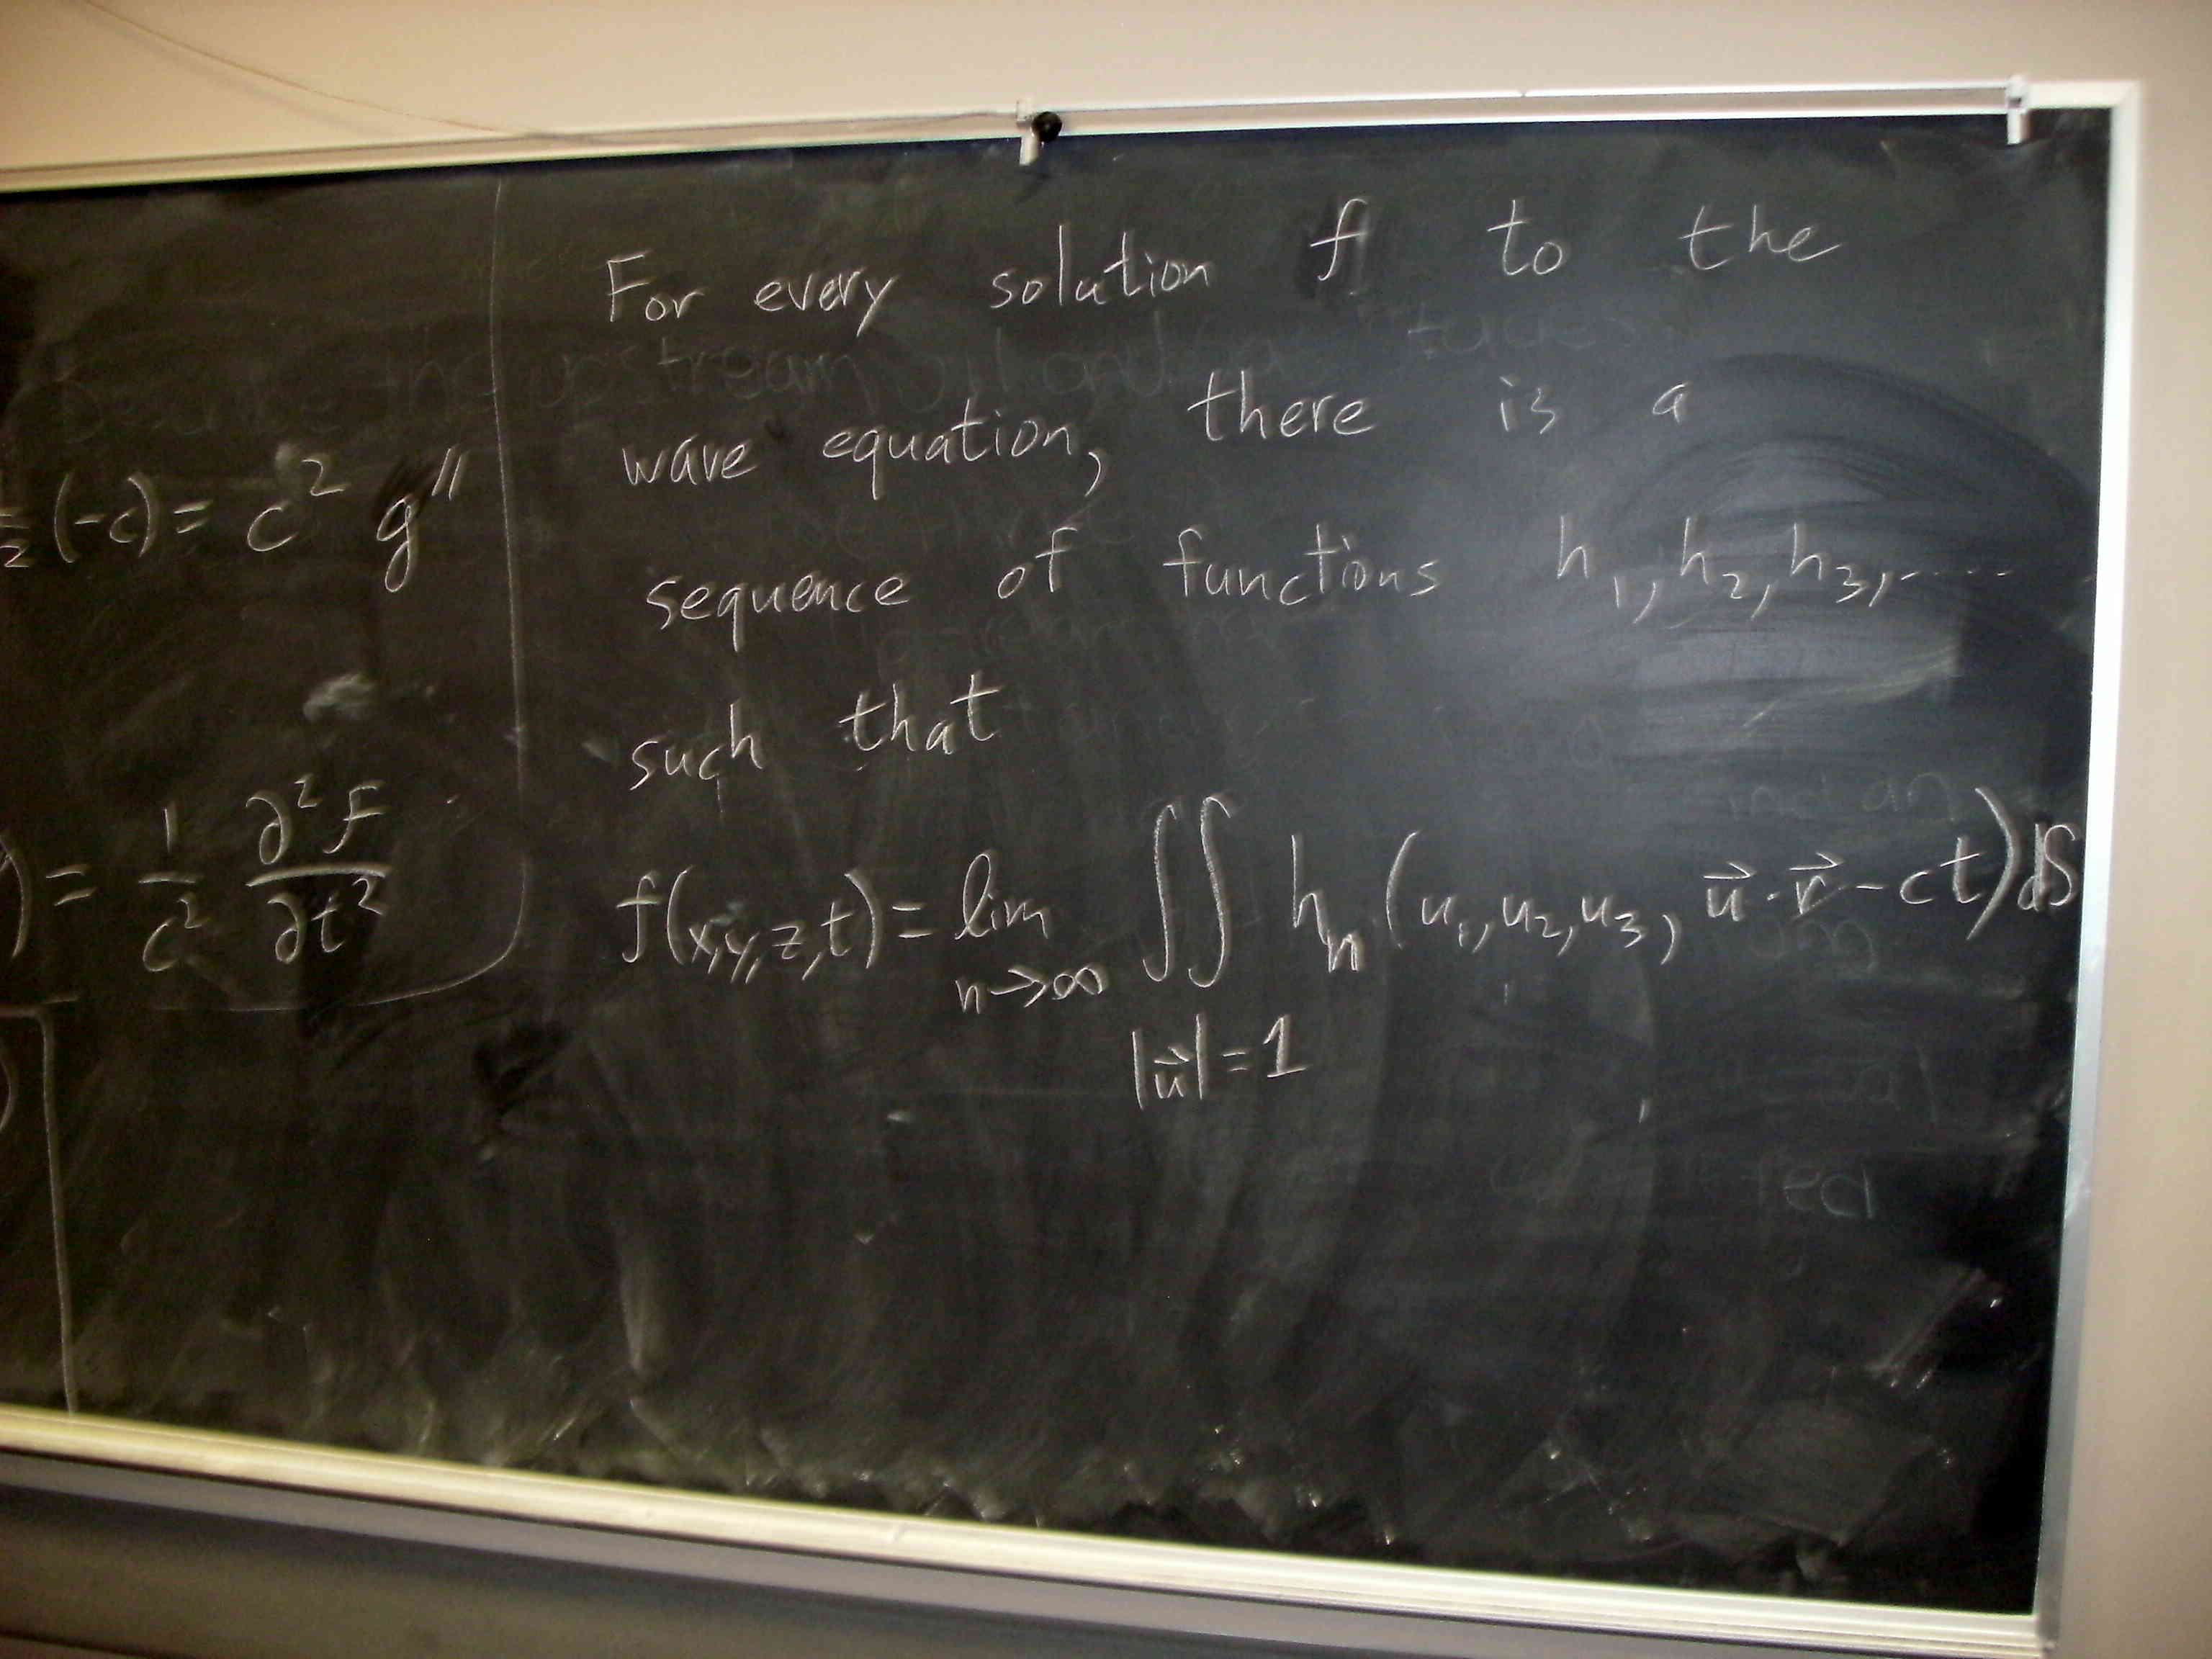 (-c) = c² g''
= 1/c² ∂²F/∂t²
For every solution f to the
wave equation, there is a
sequence of functions h₁, h₂, h₃, .....
such that
f(x,y,z,t) = lim n→∞ ∬ |u⃗|=1 hₙ(u₁,u₂,u₃, u⃗·r⃗ - ct) dS